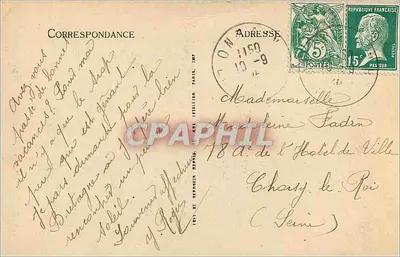 CORRESPONDANCE
ADRESSE
Avez vous
passé de bonnes
vacances? Pour moi
il n'y a que le trop
peu qui est gênant.
Je pars demain pour la
Bretagne où j'espère bien
rencontrer un peu de
soleil.
Souvenir affectueux
Roger
1150
10-9
5c
POSTES
RÉPUBLIQUE FRANÇAISE
15c
PASTEUR
Mademoiselle
Madeleine Fadin
78 A. de l'Hotel de Ville
Choisy le Roi
(Seine)
CPAPHIL